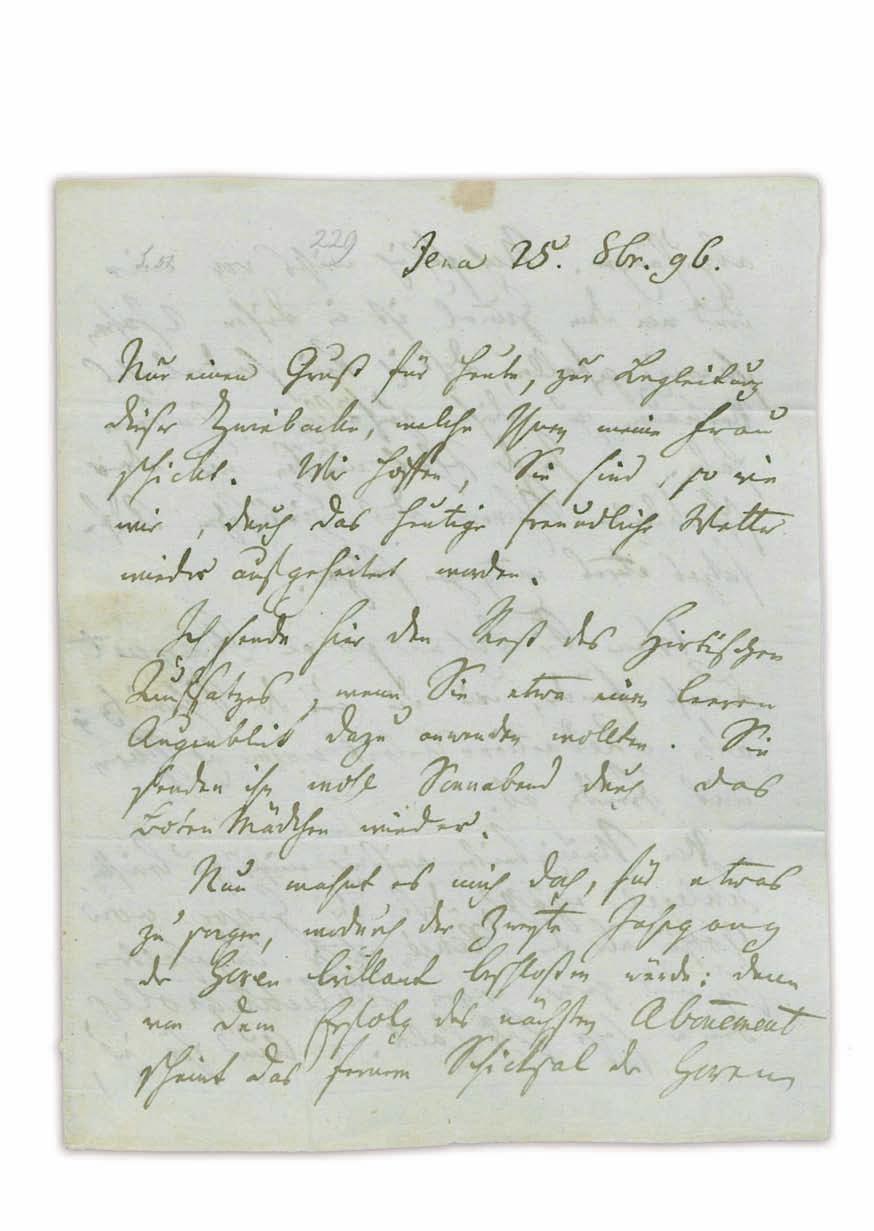 229
Jena 25. 8br. 96.
Nur einen Gruß für heute, zur Begleitung
dieser Zwiebacke, welche Ihnen meine Frau
schickt. Wir hoffen, Sie sind, so wie
wir, durch das heutige freundliche Wetter
wieder aufgeheitert worden.
Ich sende hier den Rest des Hirtischen
Aufsatzes, wenn Sie etwa einen leeren
Augenblick dazu anwenden wollten. Sie
senden ihn wohl Sonnabend durch das
Boten Mädchen wieder.
Nun mahnt es mich doch, für etwas
zu sorgen, wodurch der Zweyte Jahrgang
der Horen brillant beschloßen würde: denn
von dem Erfolg des nächsten Abonement
scheint das fernere Schicksal der Horen